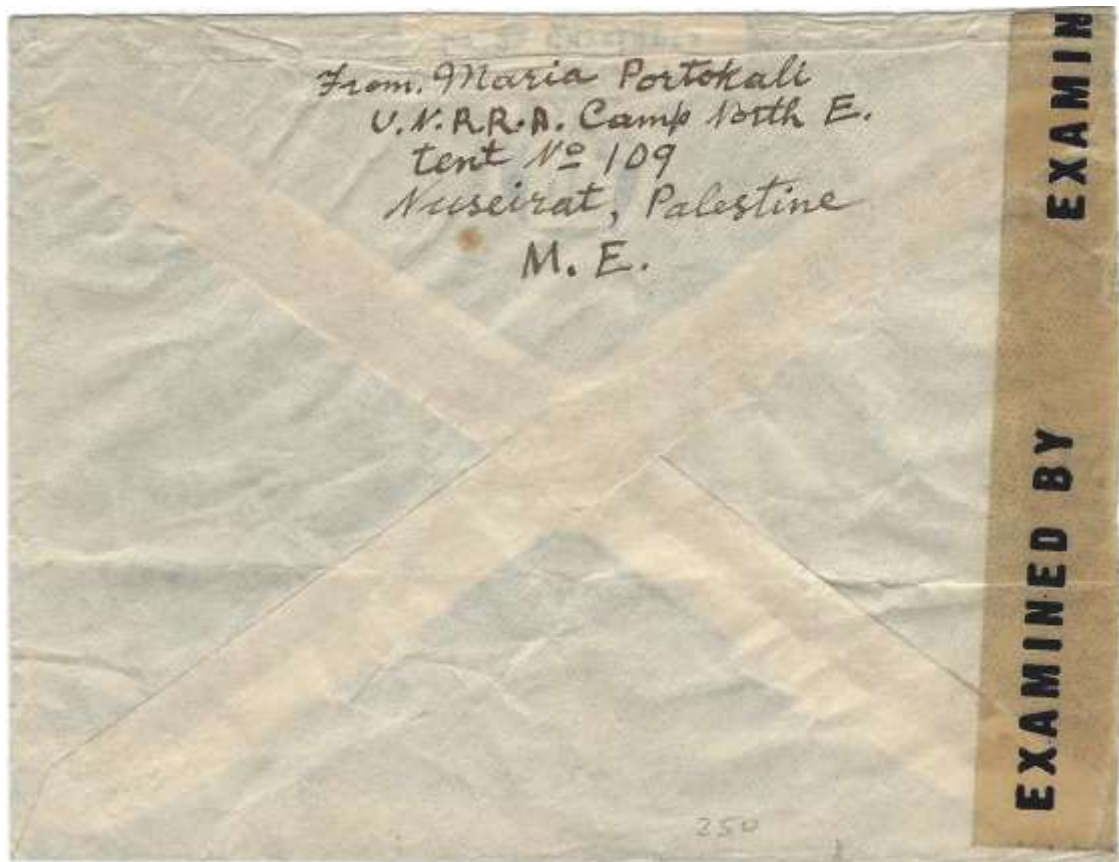 From. Maria Portokali
U.N.R.R.A. Camp North E.
tent Nº 109
Nuseirat, Palestine
M. E.
EXAMINED BY
EXAMIN
250